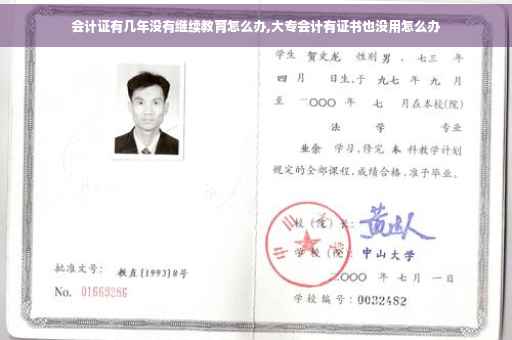 会计证有几年没有继续教育怎么办,大专会计有证书也没用怎么办
学生 贺文龙 性别 男 、七三 年
四 月 日生,于 九七 年 九 月
至 二〇〇〇 年 七 月在本校(院)
法 学 专业
业余 学习,修完 本 科教学计划
规定的全部课程,成绩合格,准予毕业。
校(院)长:
学校(院): 中山大学
二〇〇〇 年 七 月 一 日
批准文号: 教直[1993]8号
No. 01669286
学校编号: 0032482